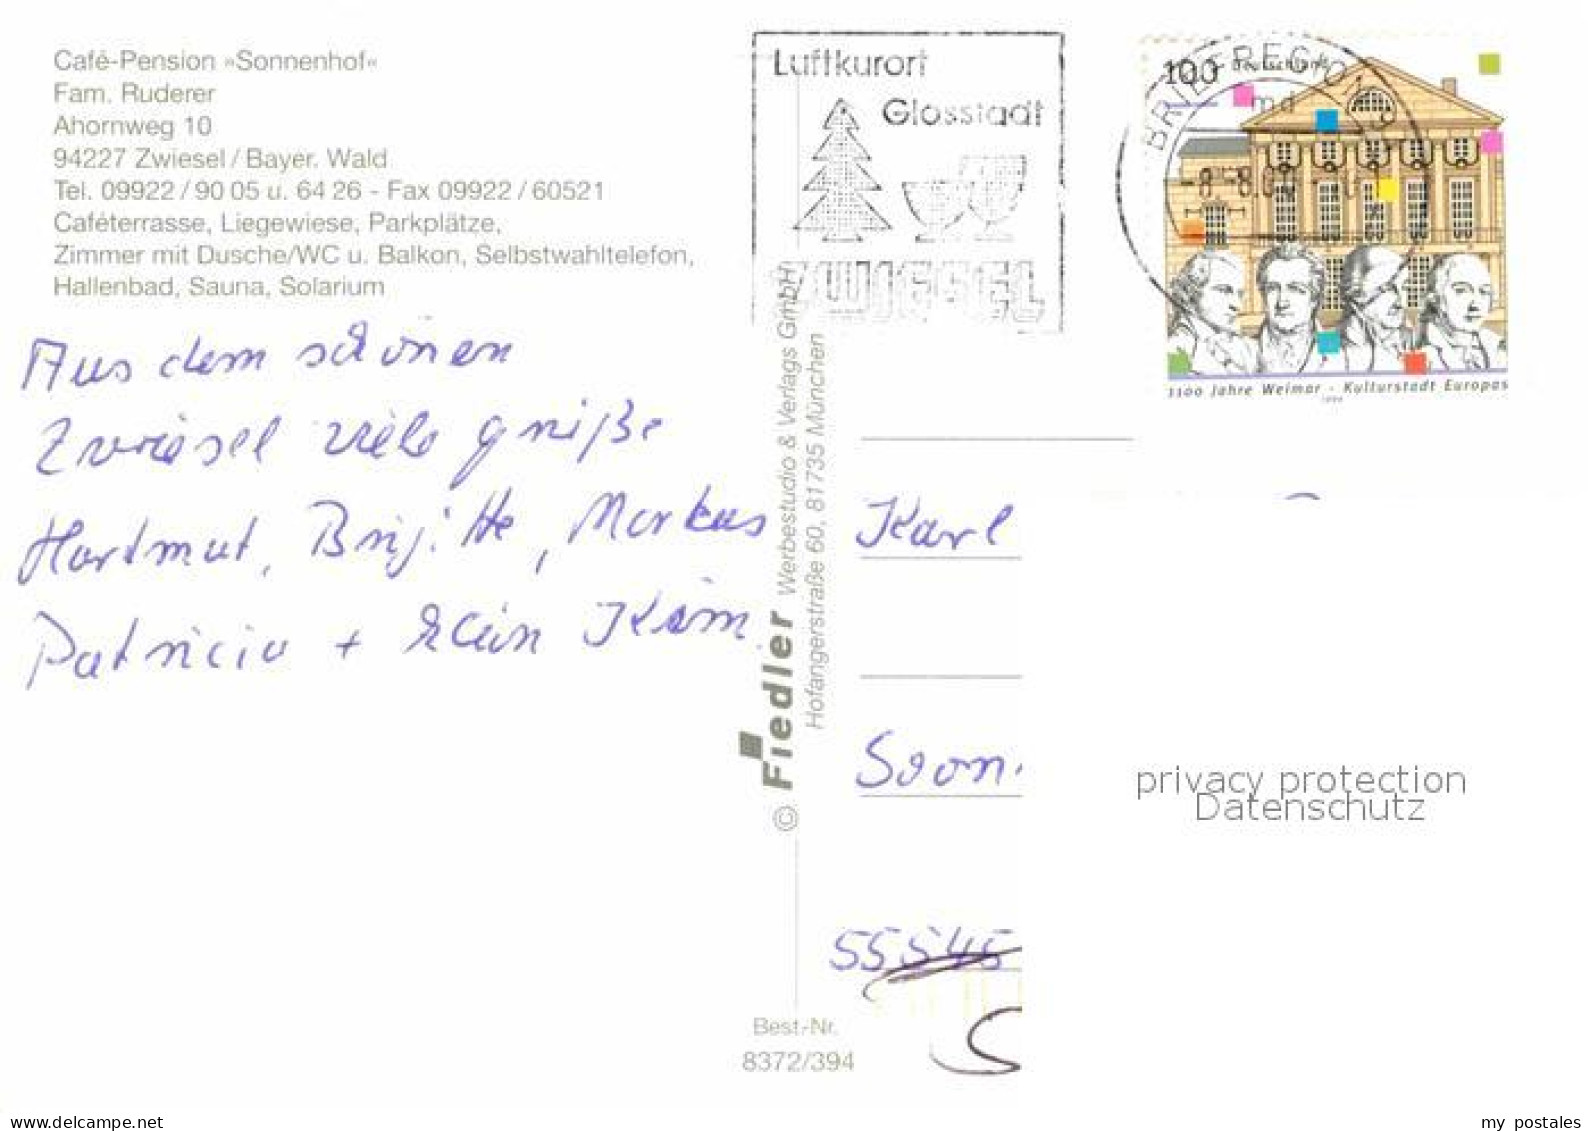 Café-Pension »Sonnenhof«
Fam. Ruderer
Ahornweg 10
94227 Zwiesel / Bayer. Wald
Tel. 09922 / 90 05 u. 64 26 - Fax 09922 / 60521
Caféterrasse, Liegewiese, Parkplätze,
Zimmer mit Dusche/WC u. Balkon, Selbstwahltelefon,
Hallenbad, Sauna, Solarium
Aus dem schönen
Zwiesel viele Grüße
Hartmut, Brigitte, Markus
Patricia + klein
Luftkurort
Glasstadt
ZWIESEL
BRIEFREGION
100 Deutschland
1100 Jahre Weimar - Kulturstadt Europas
1999
© Fiedler Werbestudio & Verlags GmbH
Hofangerstraße 60, 81735 München
Karl
55545
privacy protection
Datenschutz
Best.-Nr.
8372/394
www.delcampe.net
my_postales